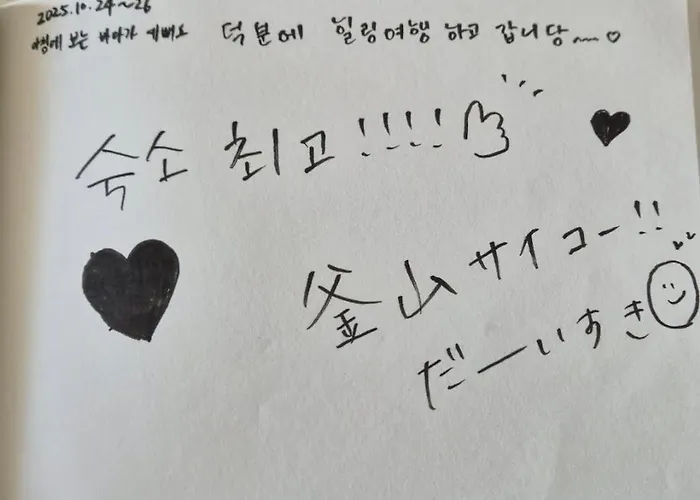 2025.10.24~26
아침에 보는 바다가 예뻐요
덕분에 힐링여행 하고 갑니당~~♡
숙소 최고!!!!
釜山サイコー!!
だーいすき